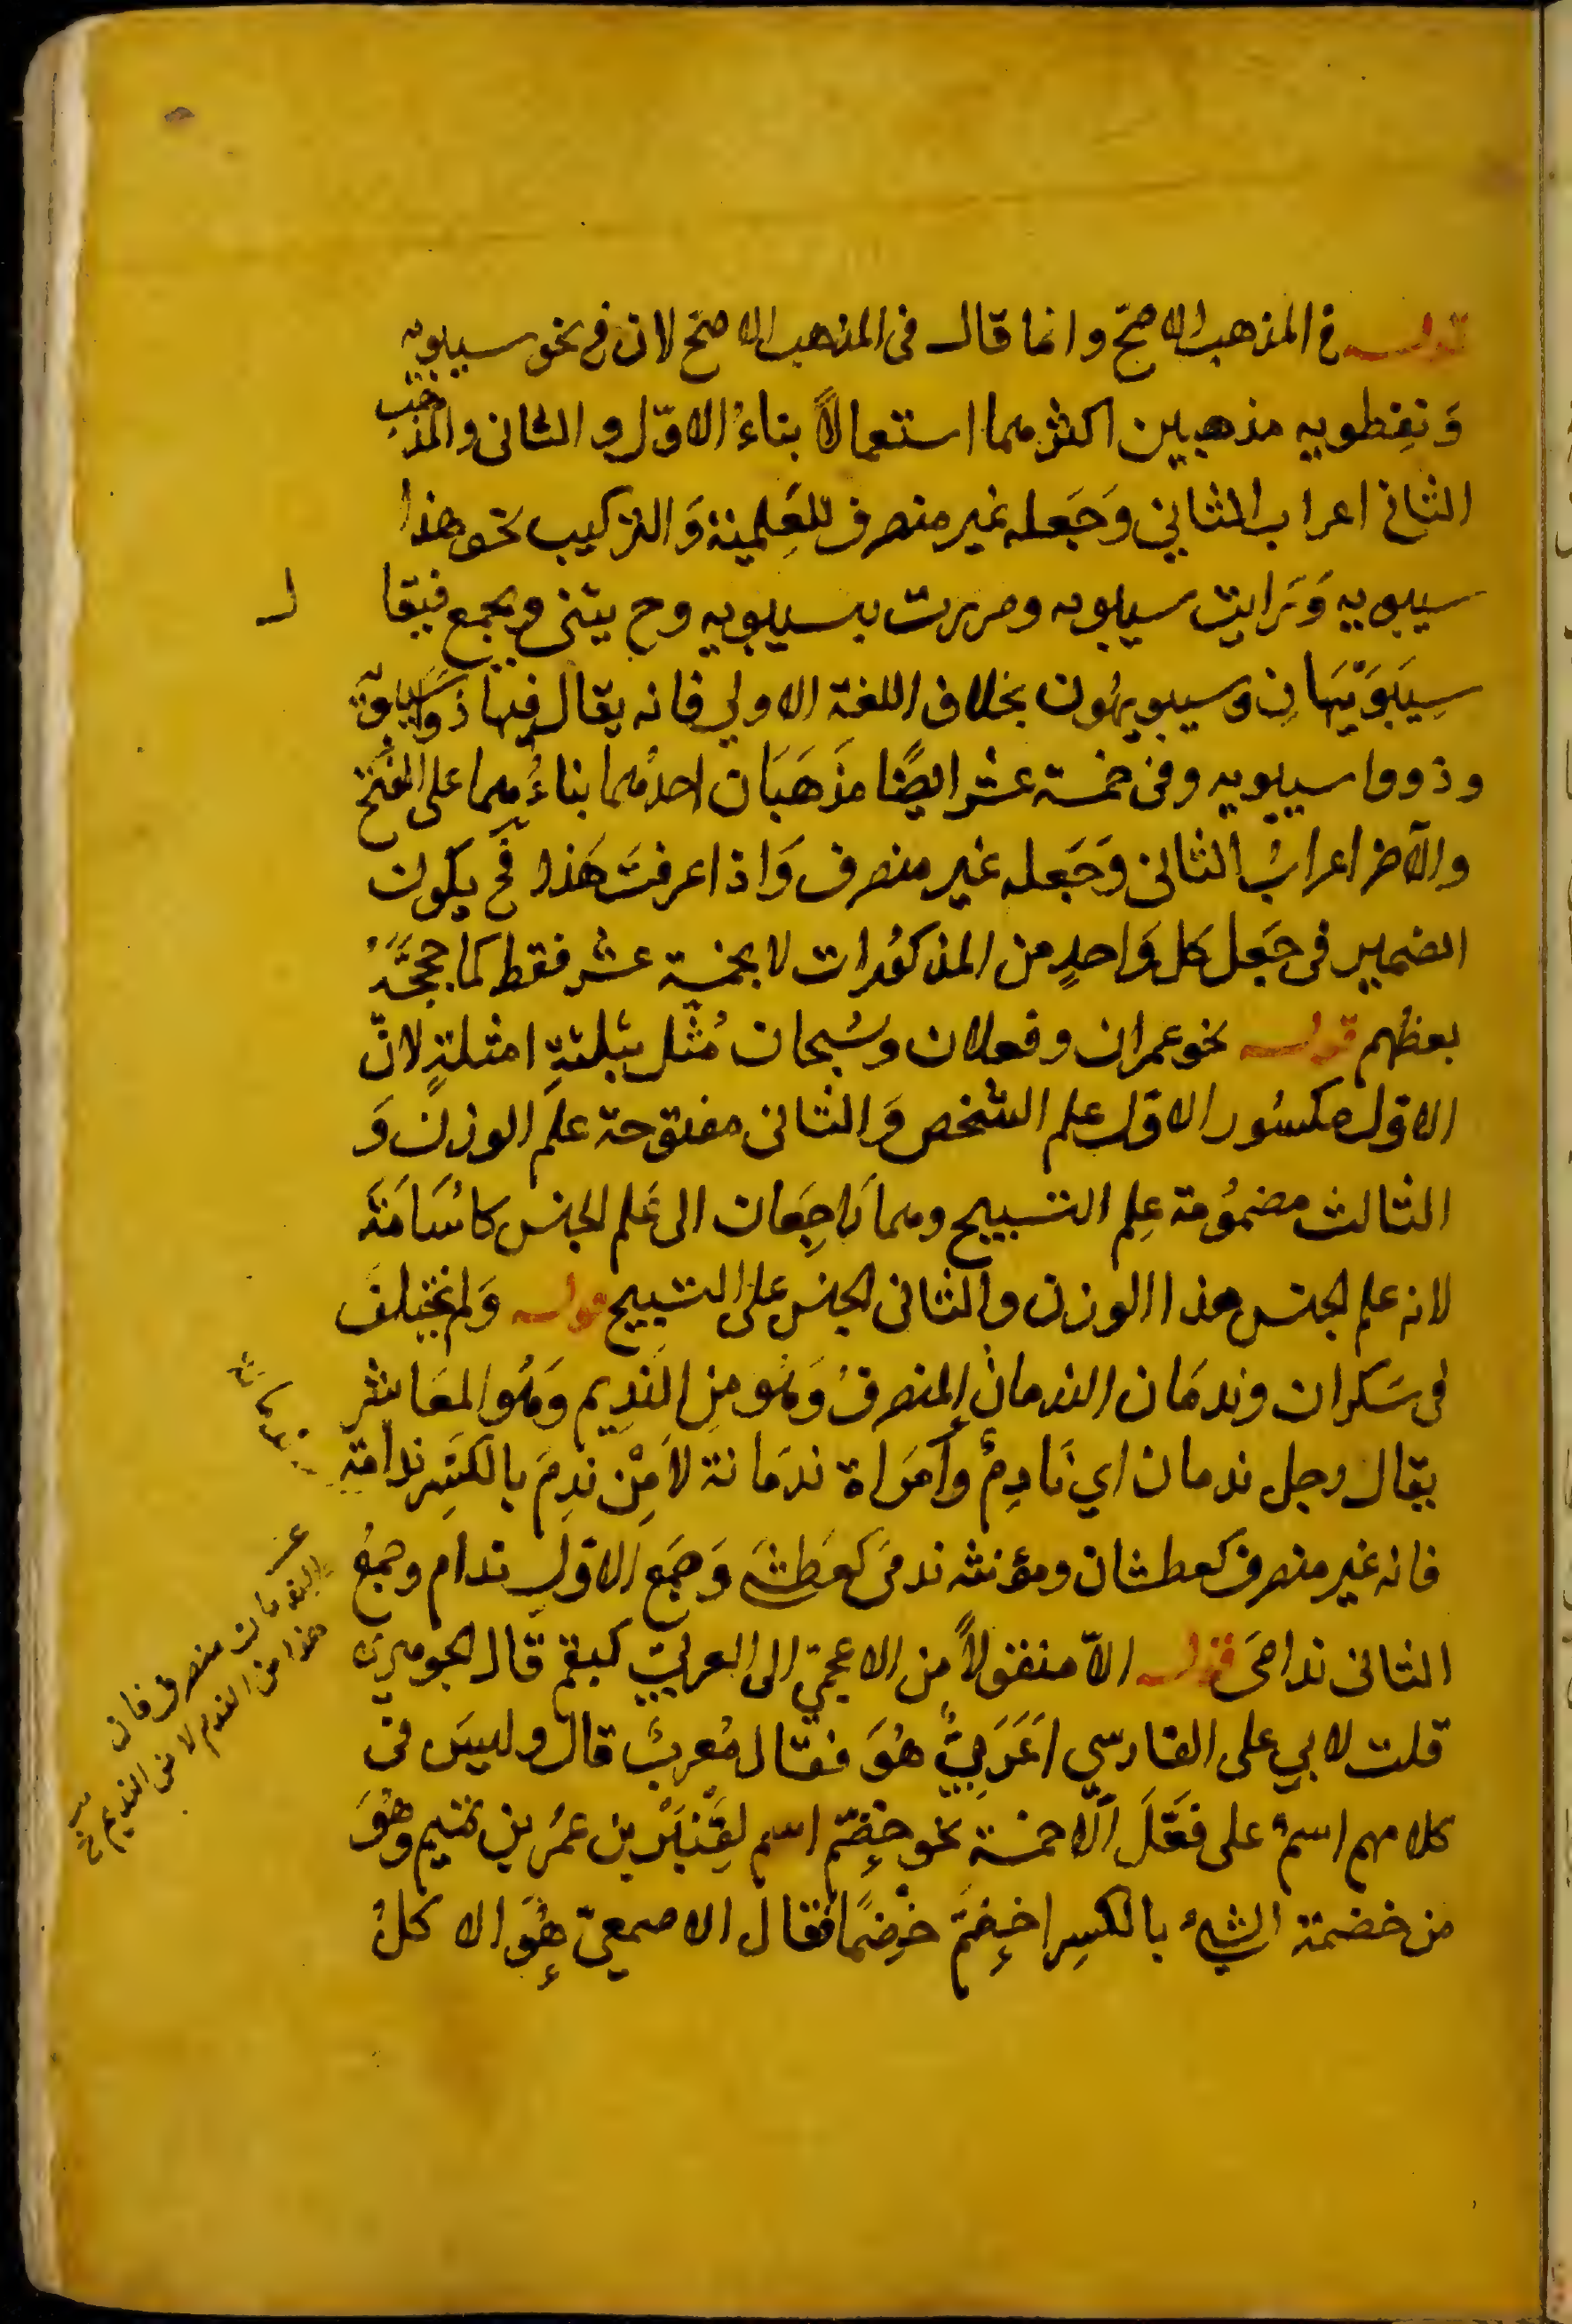 قوله في المذهب الاصحّ وانما قال في المذهب الاصحّ لان في نحو سيبويه
وَنِفطويه مذهبين اكثرهما استعمالاً بناءُ الاوّل والثاني والمذهب
الثاني اعراب الثاني وَجَعله غير منصرف للعَلمية وَالتركيب نحو هذا
سيبويه وَرَايت سيبويه ومررت بسيبويه وح يثنى ويجمع فيقال
سِيبَوَيهَانِ وسيبويهُون بخلاف اللغة الاولي فانه يقال فيها ذوا سيبويه
وذووا سيبويه وفي خمسة عشر ايضًا مَذهَبَان احدُهما بناءُهما على الفتح
والآخر اعرابُ الثاني وَجَعله غير منصرف وَاذا عرفتَ هَذا فح يكون
الضمير في جَعل كل وَاحدٍ من المذكوُرات لا بخمسة عشر فقط كما
بعظهم قوله نحو عمران وفعلان وسُبحان مُثّل بثلثةِ امثلةٍ لانّ
الاوّل مكسُور الاول علم الشخص وَالثاني مفتوحة علَم الوزن وَ
الثالث مضموُمة عِلم التسبيح وهما رَاجِعَان الى عَلم الجنس كاسُامَة
لانه علم الجنس هذا الوزن والثاني الجنس على التسبيح قوله وَلم يختلف
في سَكران وندمَان الندمان المنصرفُ وَهُو مِن النديم وَهُو المعَاشر
يقال رجل ندمان اي نَادِمٌ وَامرَاة ندمَانة لاَ مِنْ ندِمَ بالكَسِر ندامة
فانه غير منصرف كعطشان ومؤنثه ندمىَ كعَطشىَ وَجَمع الاوّل ندام وجمعُ
الثاني ندامىَ قوله الاّ منقولاً من الاعجميّ الى العربيّ كبقم قال الجوهري
قلت لابي على الفارسي اَعَرَبيٌّ هُوَ فقال مُعربٌ قال وليسَ في
كلامهم اسمٌ على فَعَّلَ اَلّا خمسة نحو خضّم اسم لعَنْبَرْ بن عمُر بن تميم وَهُوَ
من خضمتُ الشيءُ بالكسِر اخضمَ خَضمًا فقال الاصمعيّ هُوَ الاكلُ
الندمان منصرف فان
هذا من النديم لا من الندم